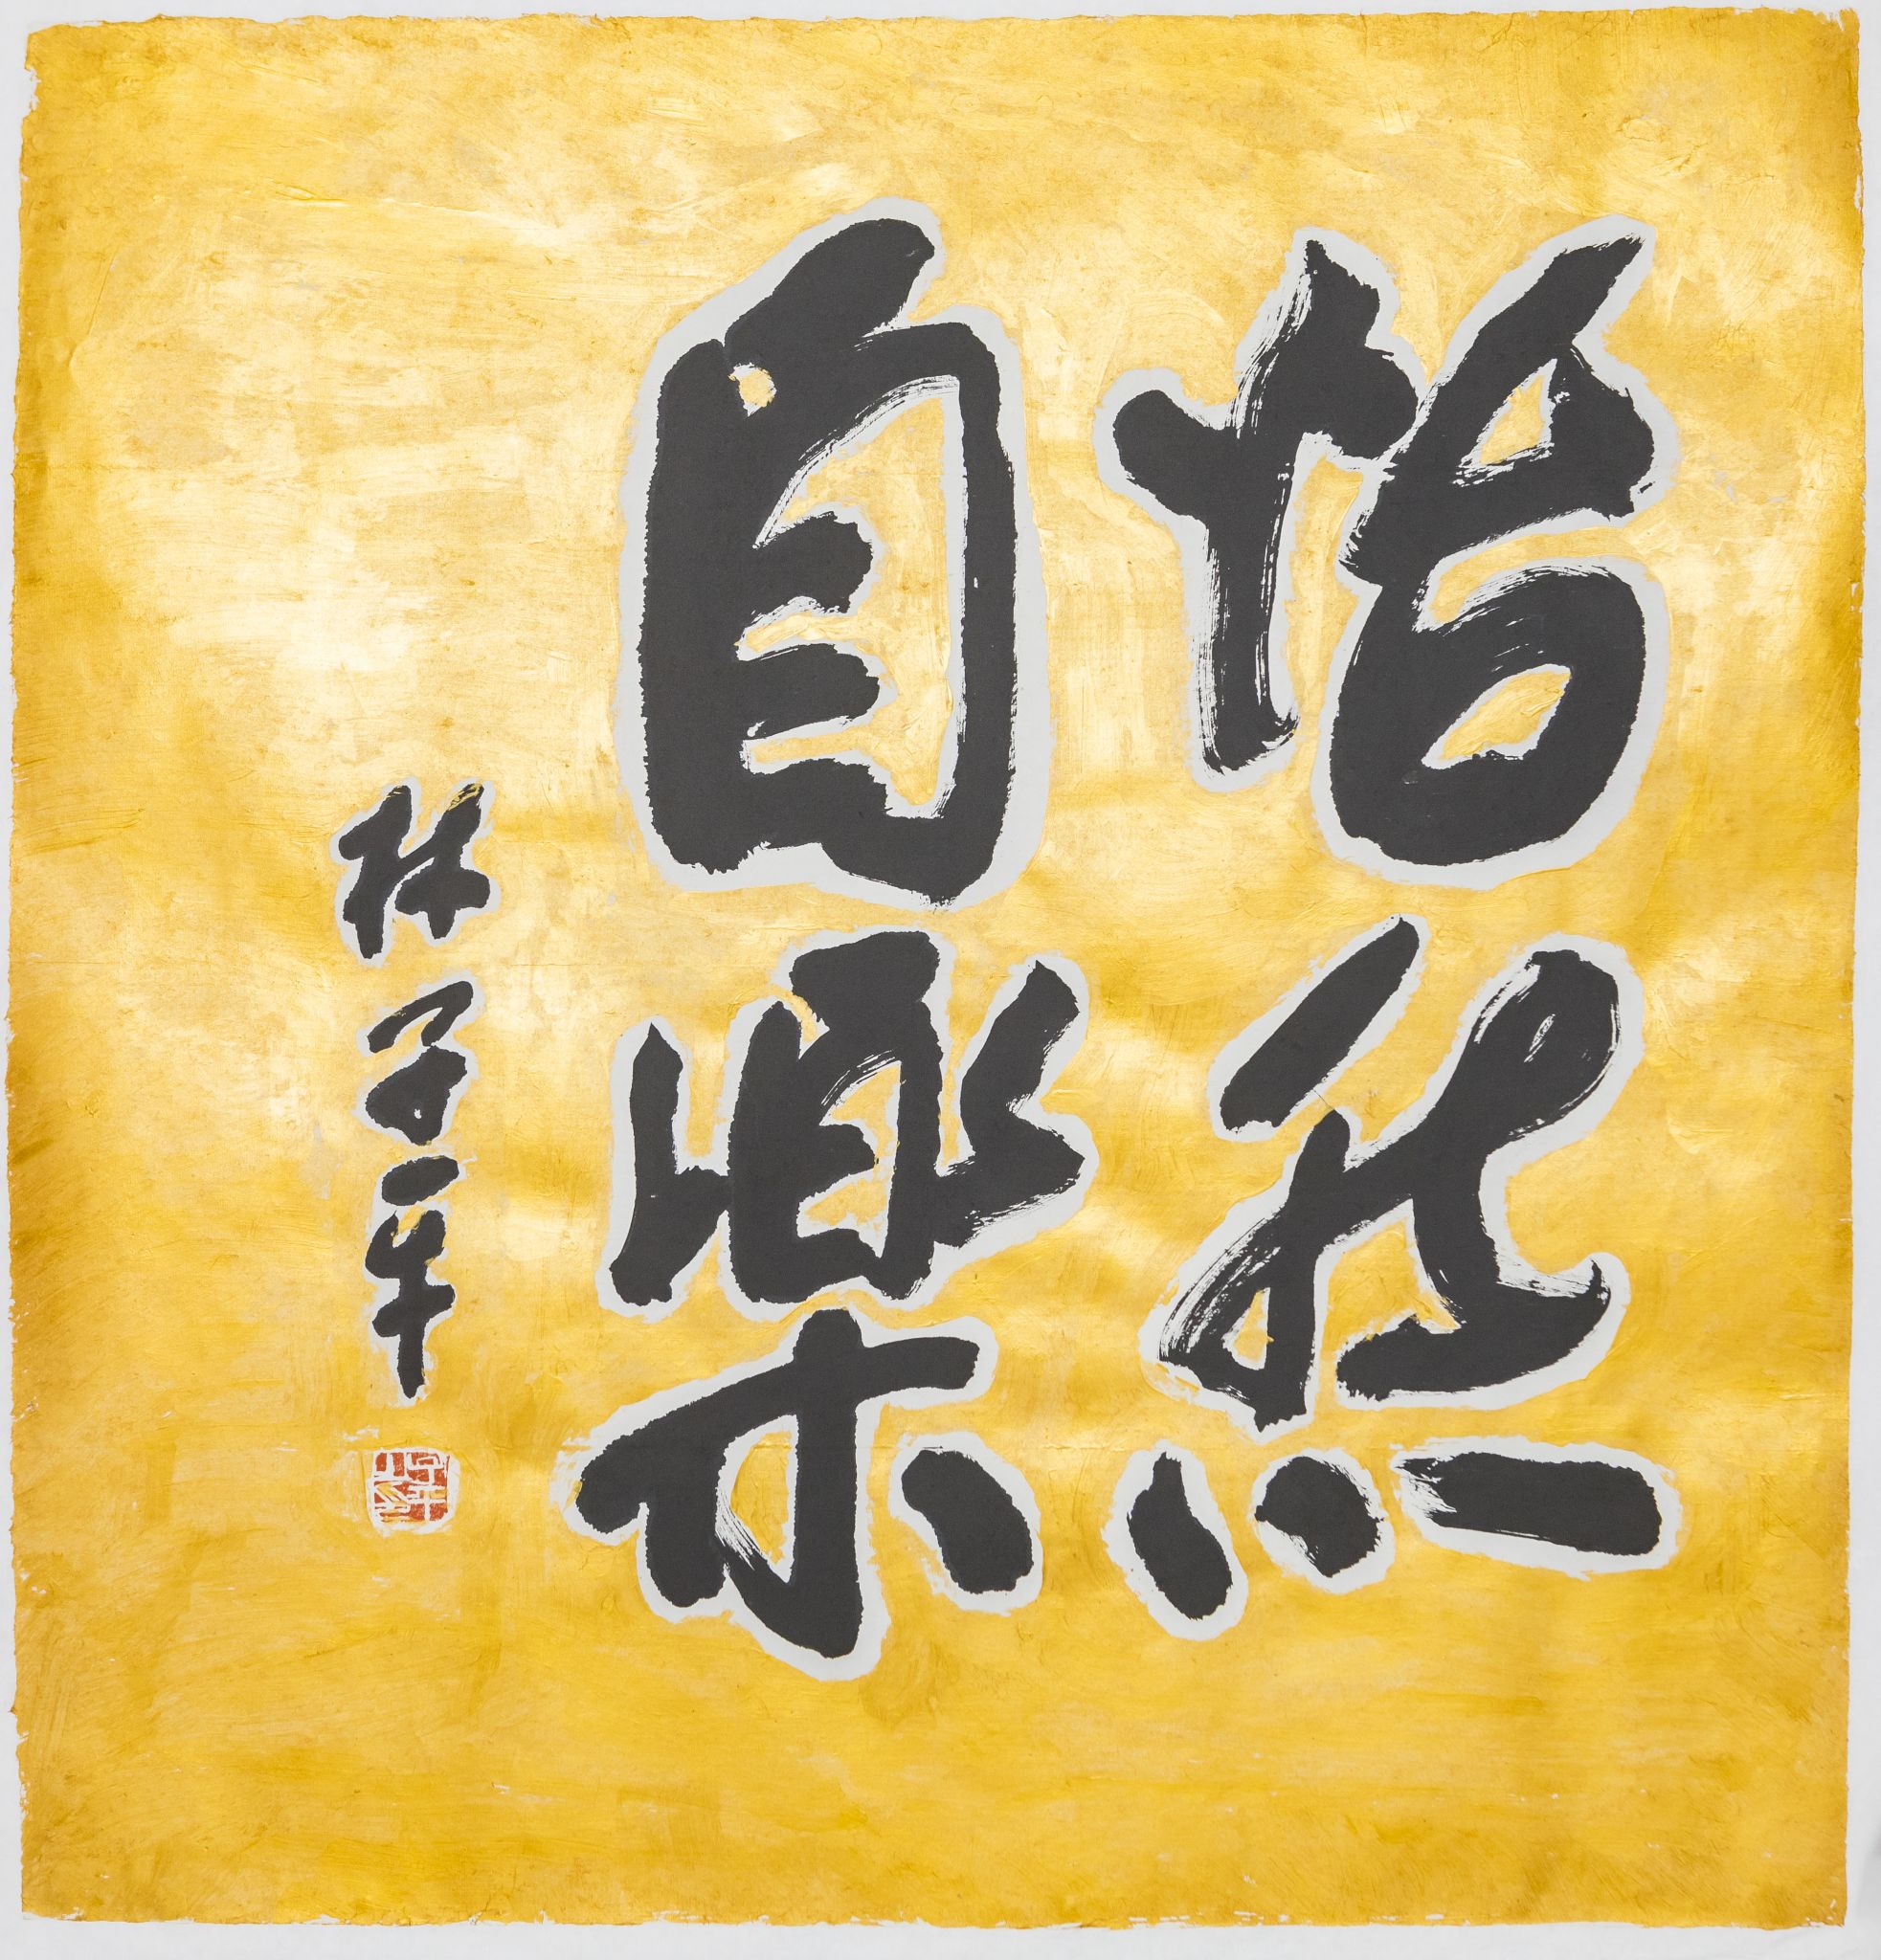 怡然
自樂
林子平